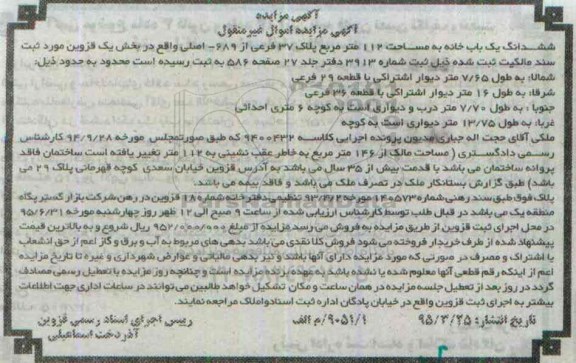 آگهی مزایده
آگهی مزایده اموال غیرمنقول
ششدانگ یک باب خانه به مساحت ۱۱۲ متر مربع پلاک ۳۷ فرعی از ۶۸۹- اصلی واقع در بخش یک قزوین مورد ثبت
سند مالکیت ثبت شده ذیل ثبت شماره ۳۹۱۳ دفتر جلد ۲۷ صفحه ۵۸۶ به ثبت رسیده است محدود به حدود ذیل:
شمالا: به طول ۷/۶۵ متر دیوار اشتراکی با قطعه ۲۹ فرعی
شرقا: به طول ۱۶ متر دیوار اشتراکی با قطعه ۳۶ فرعی
جنوبا : به طول ۷/۷۰ متر درب و دیواری است به کوچه ۶ متری احداثی
غربا: به طول ۱۳/۷۵ متر دیواری است به کوچه
ملکی آقای حجت اله جباری مدیون پرونده اجرایی کلاسه ۹۴۰۰۴۳۲ که طبق صورتمجلس مورخه ۹۴/۹/۲۸ کارشناس
رسمی دادگستری ( مساحت مالک از ۱۴۶ متر مربع به خاطر عقب نشینی به ۱۱۲ متر تغییر یافته است ساختمان فاقد
پروانه ساختمان می باشد با قدمت بیش از ۳۵ سال می باشد به آدرس قزوین خیابان سعدی کوچه قهرمانی پلاک ۲۹ می
باشد) طبق گزارش بستانکار ملک در تصرف ملک می باشد و فاقد بیمه می باشد.
پلاک فوق طبق سند رهنی شماره ۱۰۵۷۳ مورخه تنظیمی دفترخانه شماره ۱۸ قزوین در رهن شرکت بازار گستر پگاه
منطقه یک می باشد در قبال طلب توسط کارشناس ارزیابی شده از ساعت ۹ صبح الی ۱۲ ظهر روز چهارشنبه مورخه ۹۵/۶/۳۱
در محل اجرای ثبت قزوین از طریق مزایده به فروش می رسد مزایده از مبلغ ۹۵۲/۰۰۰/۰۰۰ ریال شروع و به بالاترین قیمت
پیشنهاد شده از طرف خریدار فروخته می شود فروش کلا نقدی می باشد بدهی های مربوط به آب و برق و گاز اعم از حق انشعاب
یا اشتراک و مصرف در صورتی که مورد مزایده دارای آنها باشد و نیز بدهی مالیاتی و عوارض شهرداری و غیره تا تاریخ مزایده
اعم از اینکه رقم قطعی آنها معلوم شده یا نشده باشد به عهده برنده مزایده است و چنانچه روز مزایده با تعطیل رسمی مصادف
گردد در روز بعد از تعطیل جلسه مزایده در همان ساعت و مکان تشکیل خواهد طالبین می توانند در ساعات اداری جهت اطلاعات
بیشتر به اجرای ثبت قزوین واقع در خیابان پادگان اداره ثبت اسناد و املاک مراجعه نمایند.
تاریخ انتشار: ۹۵/۳/۲۵ ۹۰۵۱/۱/م الف رییس اجرای اسناد رسمی قزوین
آذردخت اسماعیلی